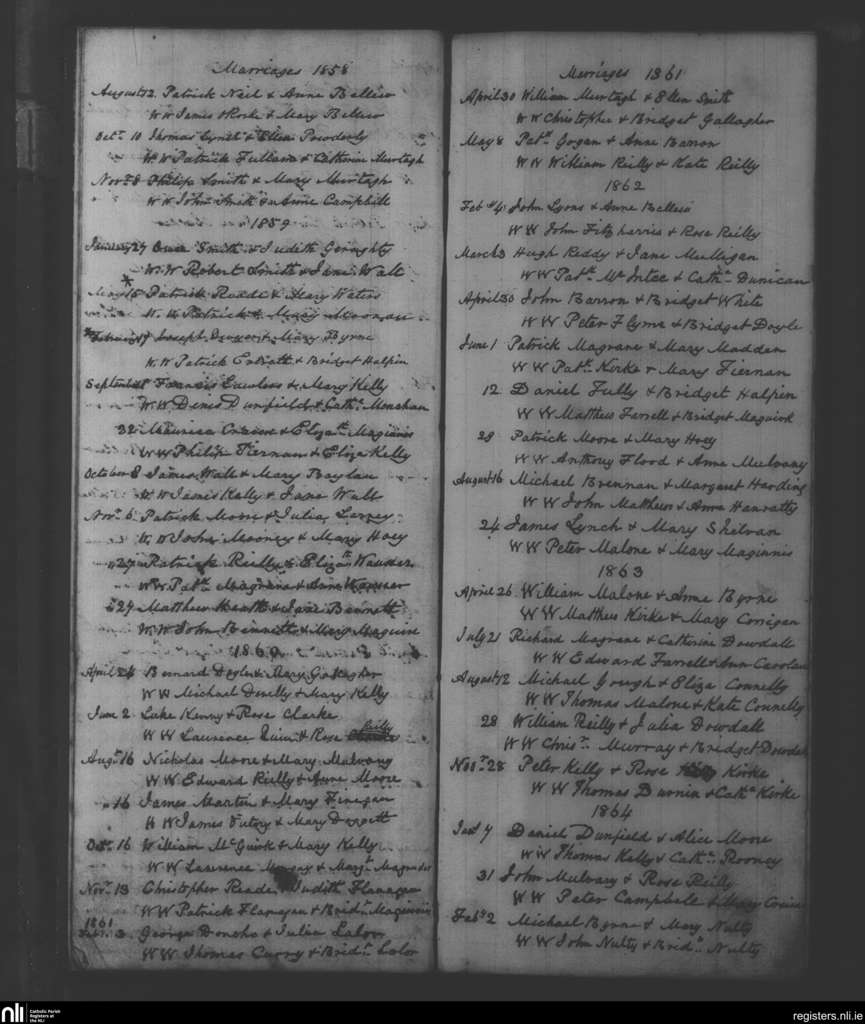 Marriages 1858
August 12. Patrick Neil & Anne Bellew
WW James & Mary Bellew
Octr. 10 Thomas & Ellen Powderly
WW Patrick & Catherine Murtagh
Novr. 8 Philip Smith & Mary Murtagh
WW John Smith & Annie Campbell
1859
January 27 Owen Smith & Judith Geraghty
W.W Robert Smith & Jane Wall
May 15 Patrick Reade & Mary Waters
W. W. Patrick & Mary
February 19 Joseph & Mary Byrne
W.W Patrick & Bridget Halpin
September Francis Lawless & Mary Kelly
W.W. Denis Dunfield & Cathe. Monahan
Maurice & Elizath. Maginnis
WW Philip Tiernan & Eliza Kelly
October 8 James Wall & Mary Boylan
W.W James Kelly & Jane Wall
Novr. 6 Patrick Moore & Julia
W. W John Mooney & Mary Hoey
"27 Patrick Reilly & Elizath
WW Patk. Magrane & Ann
"29 Matthew & Jane Bennett
W.W. John Bennett & Mary Maguire
1860
April 24 Bernard Doyle & Mary Gallagher
WW Michael & Mary Kelly
June 2. Luke Kenny & Rose Clarke
WW Laurence Quinn & Rose Reilly
Augt. 16 Nicholas Moore & Mary Mulvany
WW Edward Reilly & Anne Moore
" 16 James Martin & Mary Finegan
W W James & Mary
Octr. 16 William McGuirk & Mary Kelly
WW Lawrence & Margt.
Novr. 13 Christopher Reade Judith Flanagan
WW Patrick Flanagan & Bridt. Maginnis
1861
Feby. 3. George Donoho & Julia Lalor
WW Thomas Curry & Bridt. Lalor
Marriages 1861
April 30 William Murtagh & Ellen Smith
WW Christopher & Bridget Gallagher
May 8 Patk. Gogan & Anne Barron
WW William Reilly & Kate Reilly
1862
Feb. 4 John Lyons & Anne Bellew
WW John Fitzharris & Rose Reilly
March 3 Hugh Reddy & Jane Mulligan
WW Patk. McIntee & Cathe. Dunican
April 30 John Barron & Bridget White
WW Peter Flynn & Bridget Doyle
June 1 Patrick Magrane & Mary Madden
WW Patk. Kirke & Mary Tiernan
12 Daniel Tully & Bridget Halpin
WW Matthew Farrell & Bridget Maguirk
28 Patrick Moore & Mary Hoey
WW Anthony Flood & Anne Mulvany
August 16 Michael Brennan & Margaret Harding
WW John Matthews & Anne Hanratty
24 James Lynch & Mary
WW Peter Malone & Mary Maginnis
1863
April 26. William Malone & Anne Byrne
WW Matthew Kirke & Mary Corrigan
July 21 Richard Magrane & Catherine Dowdall
WW Edward Farrell & Ann Carolan
August 12 Michael Gough & Eliza Connelly
WW Thomas Malone & Kate Connelly
28 William Reilly & Julia Dowdall
WW Chrisr. Murray & Bridget Dowdall
Novr. 28 Peter Kelly & Rose Kirke
WW Thomas Durnin & Cathe. Kirke
1864
Jany. 7 Daniel Dunfield & Alice Moore
WW Thomas Kelly & Cathe. Rooney
31 John Mulvany & Rose Reilly
WW Peter Campbell & Mary
Feby. 2 Michael Byrne & Mary Nulty
WW John Nulty & Bridt. Nulty
nli Catholic Parish Registers at the NLI
registers.nli.ie